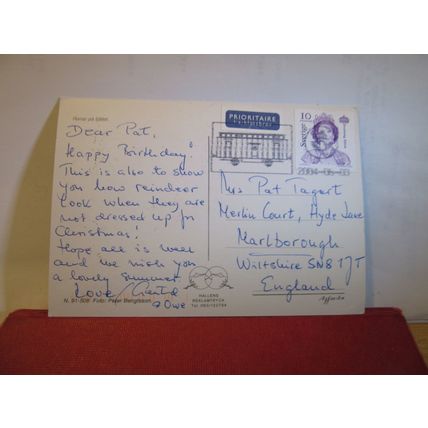 Renar på fjället
Dear Pat,
Happy Birthday!
This is also to show
you how reindeer
look when they are
not dressed up for
Christmas!
Hope all is well
and we wish you
a lovely summer.
Love
Owe
N. 91-508 Foto: Peter Bengtsson
PRIORITAIRE
10
Sverige
Mrs Pat Tagart
Merlin Court, Hyde Lane
Marlborough
Wiltshire SN8 1JT
England
HALLENS
REKLAMTRYCK